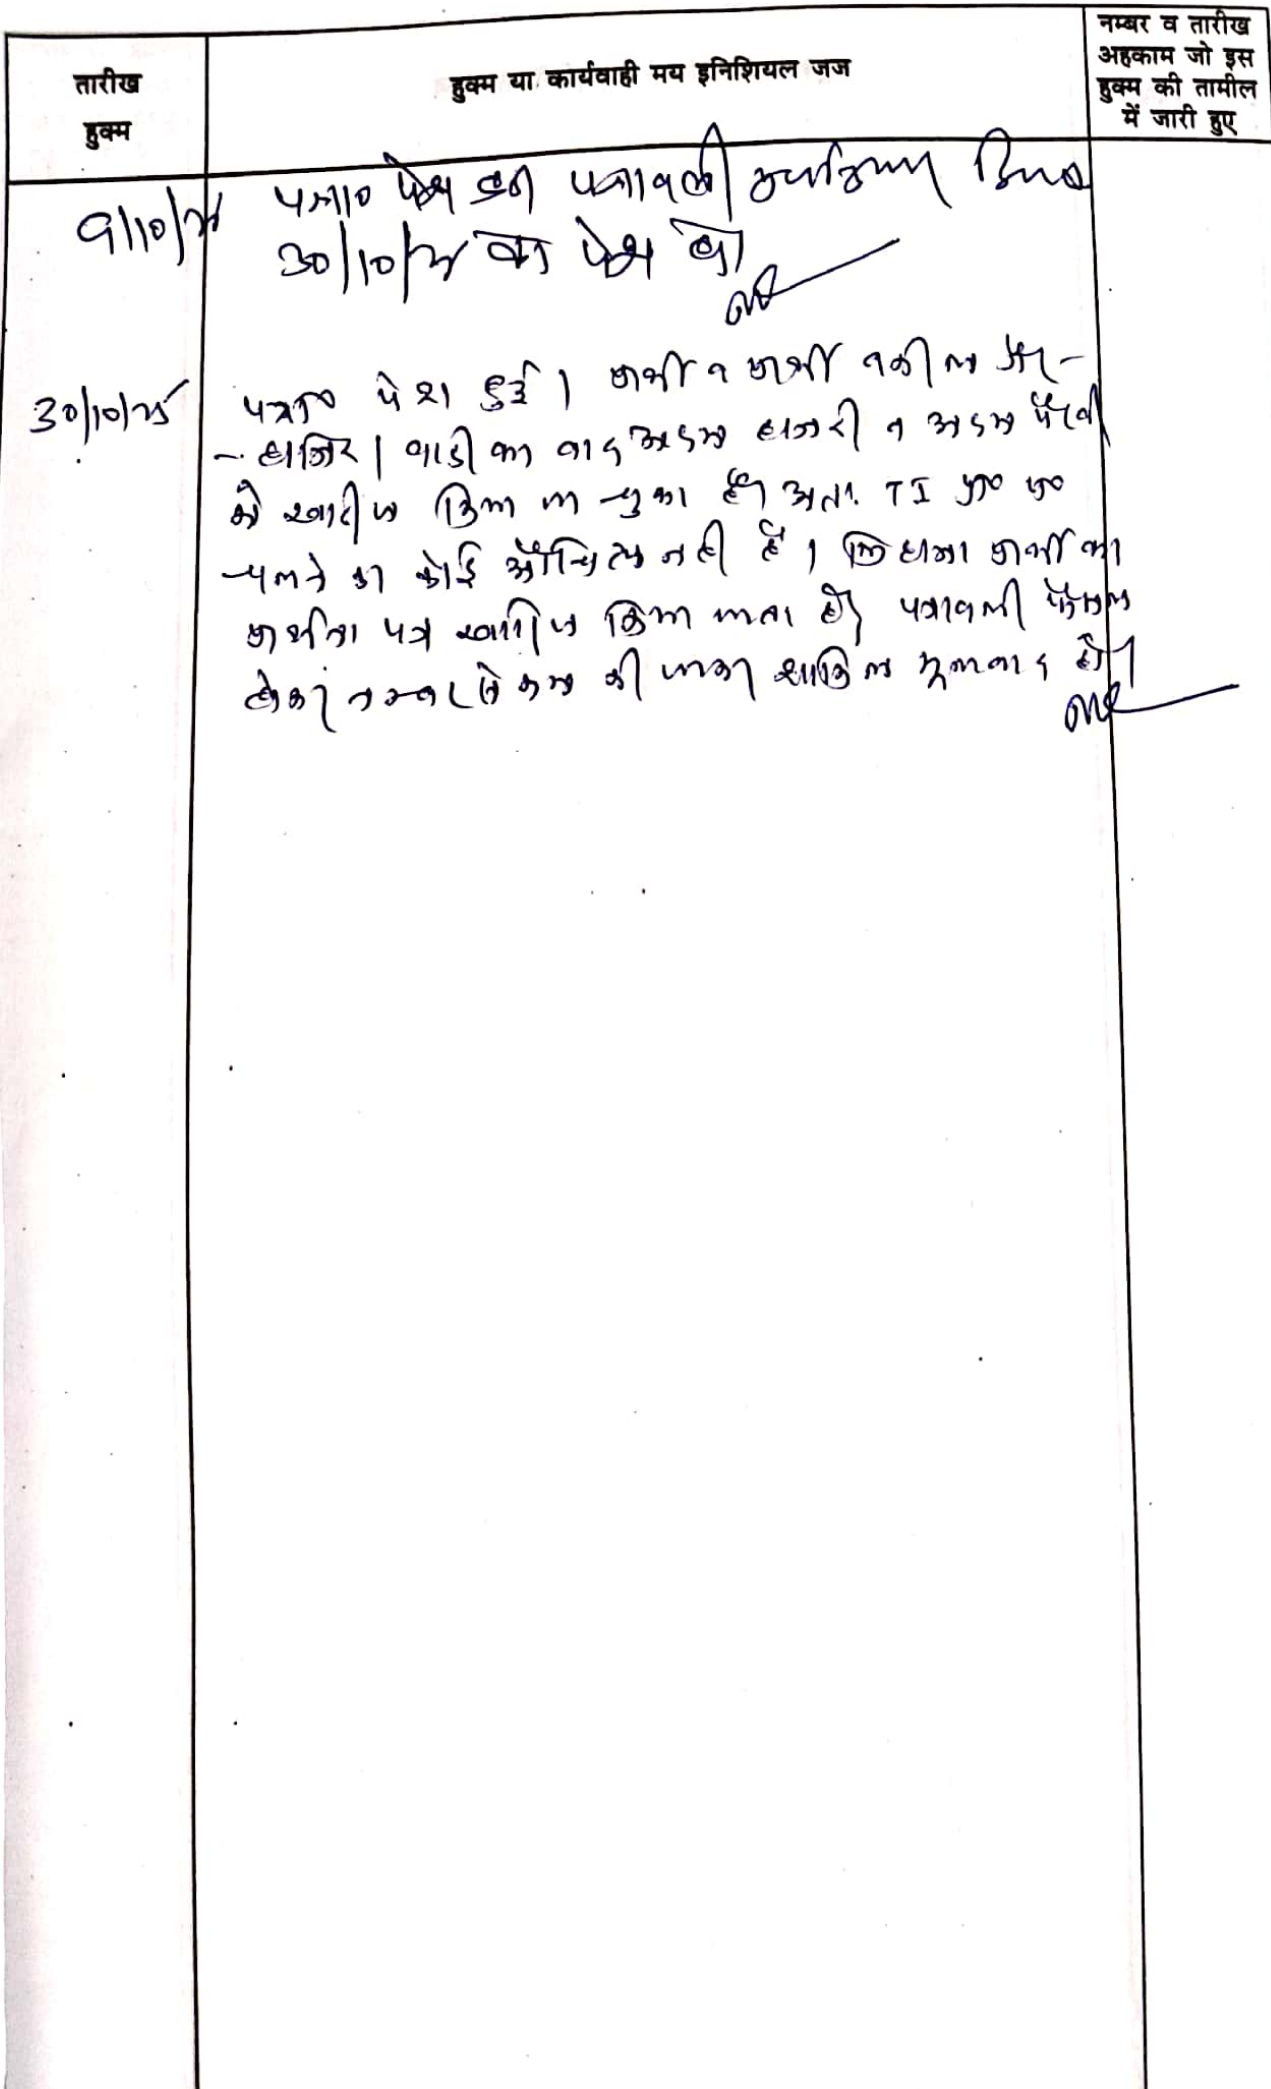 तारीख
हुक्म
हुक्म या कार्यवाही मय इनिशियल जज
नम्बर व तारीख
अहकाम जो इस
हुक्म की तामील
में जारी हुए
9/10/25 पत्रा० पेश हुई पत्रावली दिनांक
30/10/25 को पेश हो
30/10/25 पत्रा० पेश हुई। प्रार्थी व प्रार्थी वकील गैर-
- हाजिर। वादी का वाद अदम हाजरी व अदम पैरवी
में खारीज किया जा चुका है। अतः TI प्रा० प०
चलने का कोई औचित्य नही है। लिहाजा प्रार्थी का
प्रार्थना पत्र खारीज किया जाता है। पत्रावली फैसल
होकर नम्बर से कम की जाकर शामिल मूलवाद हो।